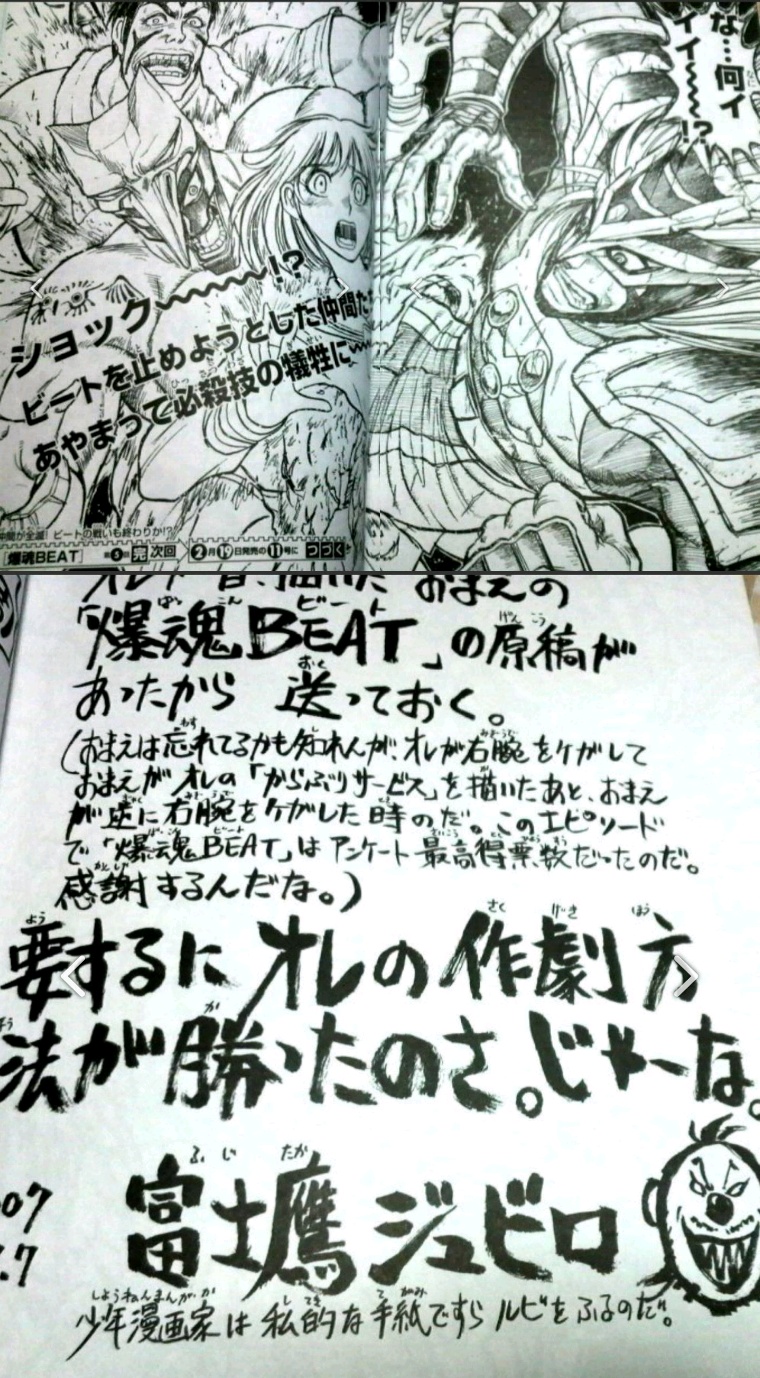 な…何ィ
イイ〜〜〜!?
ショック〜〜〜〜!?
ビートを止めようとした仲間た
あやまって必殺技の犠牲に〜
仲間が全滅!ビートの戦いも終わりか!?
[爆魂BEAT] 第5回 完 次回 2月19日発売の11号につづく
おまえの
「爆魂BEAT」の原稿が
あったから 送っておく。
(おまえは忘れてるかも知れんが、オレが右腕をケガして
おまえがオレの「からぶりサービス」を描いたあと、おまえ
が逆に右腕をケガした時のだ。このエピソード
で「爆魂BEAT」はアンケート最高得票数だったのだ。
感謝するんだな。)
要するにオレの作劇方
法が勝ったのさ。じゃーな。
07
.7
富士鷹ジュビロ
少年漫画家は私的な手紙ですらルビをふるのだ。